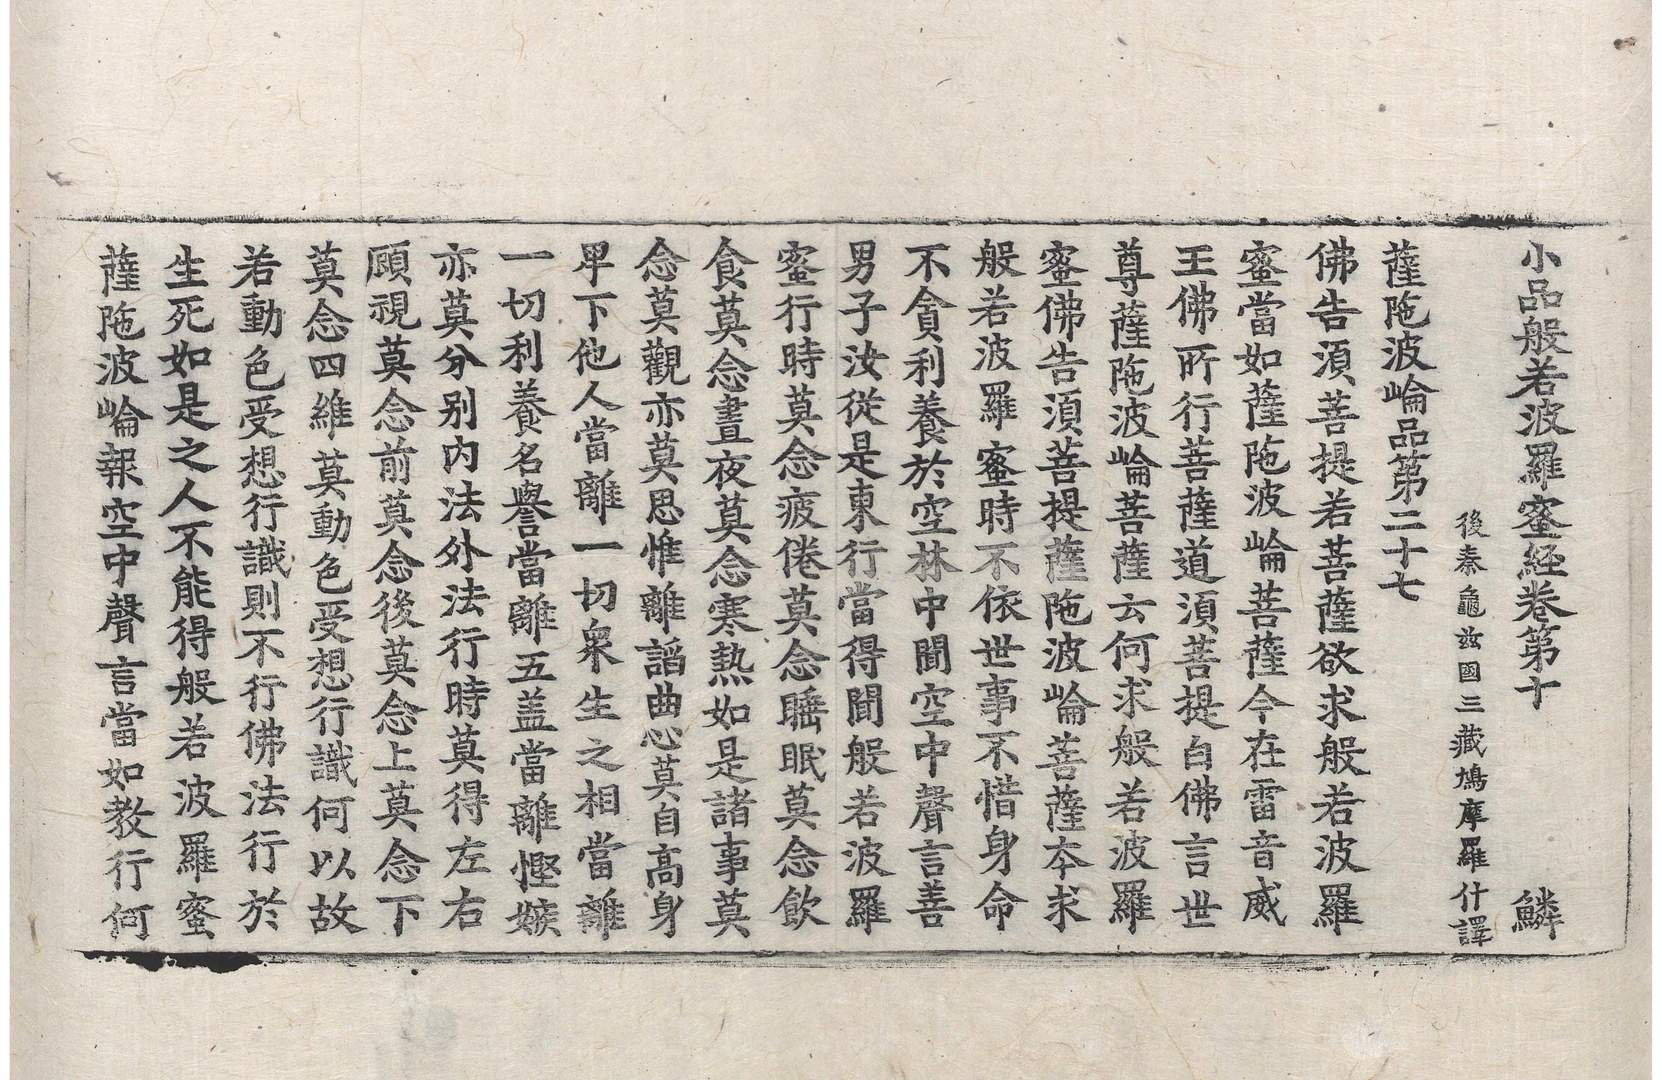 小品般若波羅蜜經卷第十 鱗
後秦龜兹國三藏鳩摩羅什譯
薩陁波崘品第二十七
佛告須菩提若菩薩欲求般若波羅
蜜當如薩陁波崘菩薩今在雷音威
王佛所行菩薩道須菩提白佛言世
尊薩陁波崘菩薩云何求般若波羅
蜜佛告須菩提薩陁波崘菩薩夲求
般若波羅蜜時不依世事不惜身命
不貪利養於空林中聞空中聲言善
男子汝從是東行當得聞般若波羅
蜜行時莫念疲惓莫念睡眠莫念飲
食莫念晝夜莫念寒熱如是諸事莫
念莫觀亦莫思惟離謟曲心莫自高身
卑下他人當離一切衆生之相當離
一切利養名譽當離五盖當離慳嫉
亦莫分别内法外法行時莫得左右
顧視莫念前莫念後莫念上莫念下
莫念四維莫動色受想行識何以故
若動色受想行識則不行佛法行於
生死如是之人不能得般若波羅蜜
薩陁波崘報空中聲言當如教行何